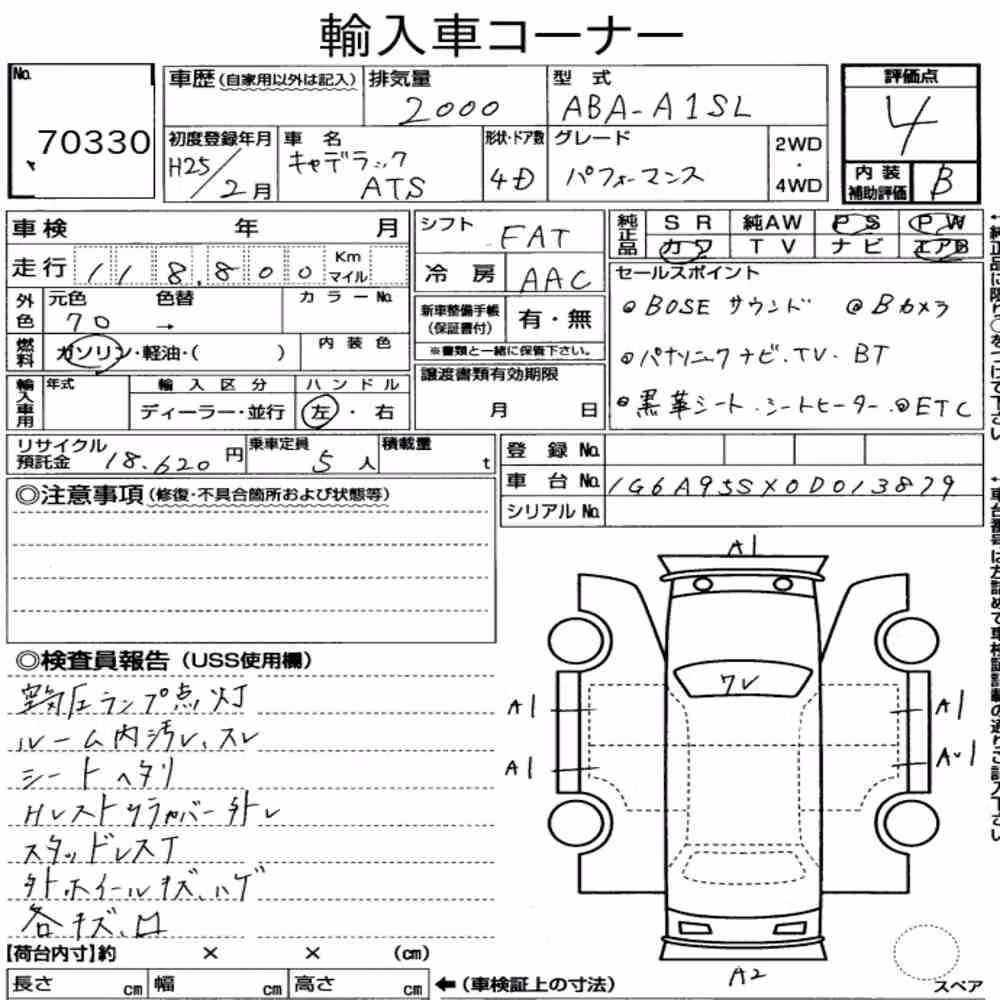 輸入車コーナー
No. 70330
車歴 (自家用以外は記入)
排気量 2000
型式 ABA-A1SL
評価点 4
初度登録年月 H25/2月
車名 キャデラック ATS
形状・ドア数 4D
グレード パフォーマンス
2WD・4WD
内装補助評価 B
車検 年 月
シフト FAT
純正品 SR 純AW PS PW
カワ TV ナビ エアB
走行 118,800 Km マイル
冷房 AAC
セールスポイント
◎BOSEサウンド ◎Bカメラ
外色 元色 70 色替 → カラーNo.
新車整備手帳(保証書付) 有・無
※書類と一緒に保管下さい。
◎パナソニックナビ.TV.BT
燃料 ガソリン・軽油・( ) 内装色
輸入車用 年式 輸入区分 ハンドル
ディーラー・並行 左・右
譲渡書類有効期限
月 日
◎黒革シート.シートヒーター.◎ETC
リサイクル預託金 18.620円
乗車定員 5人
積載量 t
登録No.
車台No. 1G6A95SX0D013879
シリアルNo.
◎注意事項(修復・不具合箇所および状態等)
◎検査員報告(USS使用欄)
空気圧ランプ点灯
ルーム内汚レ、スレ
シートヘタリ
Hレストリラカバー外レ
スタッドレスT
外ホイールキズ、ハゲ
各キズ、口
A1
ワレ
A1 A1
A1 AU1
A2
スペア
【荷台内寸】約 × × (cm)
長さ cm 幅 cm 高さ cm ←(車検証上の寸法)
←純正品に限り○をつけて下さい
←車台番号は左詰めで車検証記載の通りご記入下さい